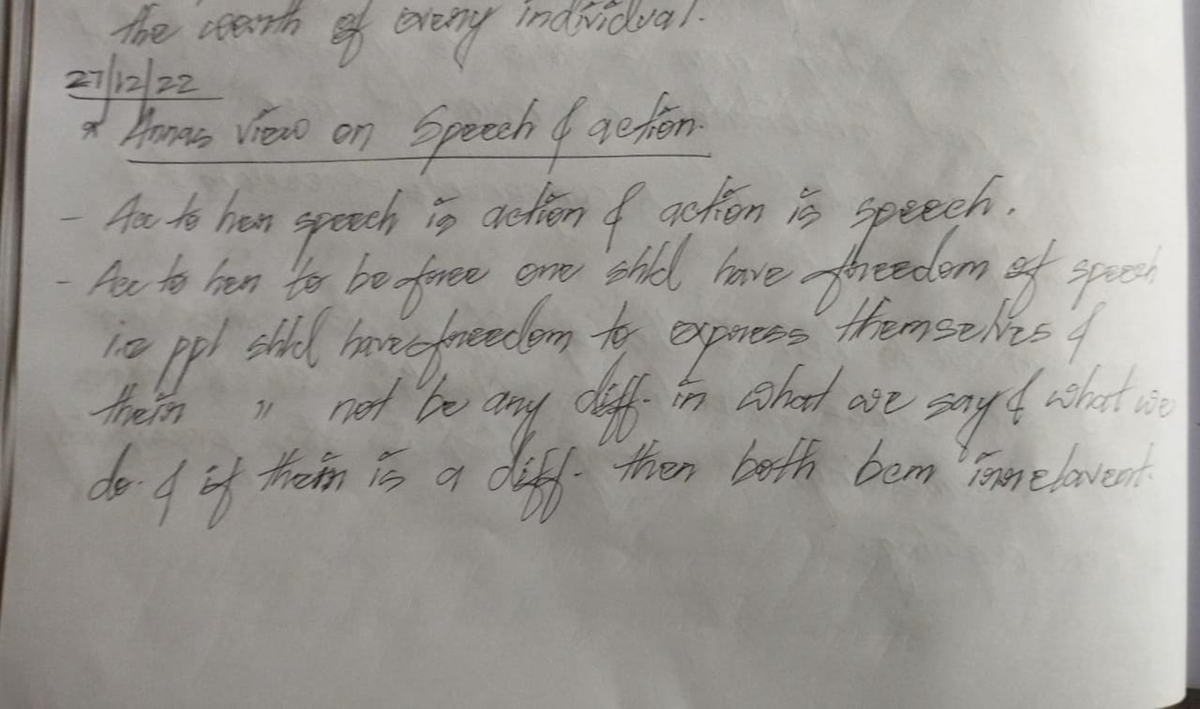 the worth of every individual.
27/12/22
* Annas view on Speech & action.
- Acc to her speech is action & action is speech.
- Acc to her to be free one shld have freedom of speech
i.e ppl shld have freedom to express themselves &
their " not be any diff. in what we say & what we
do. & if their is a diff. then both bcm irrelavent.